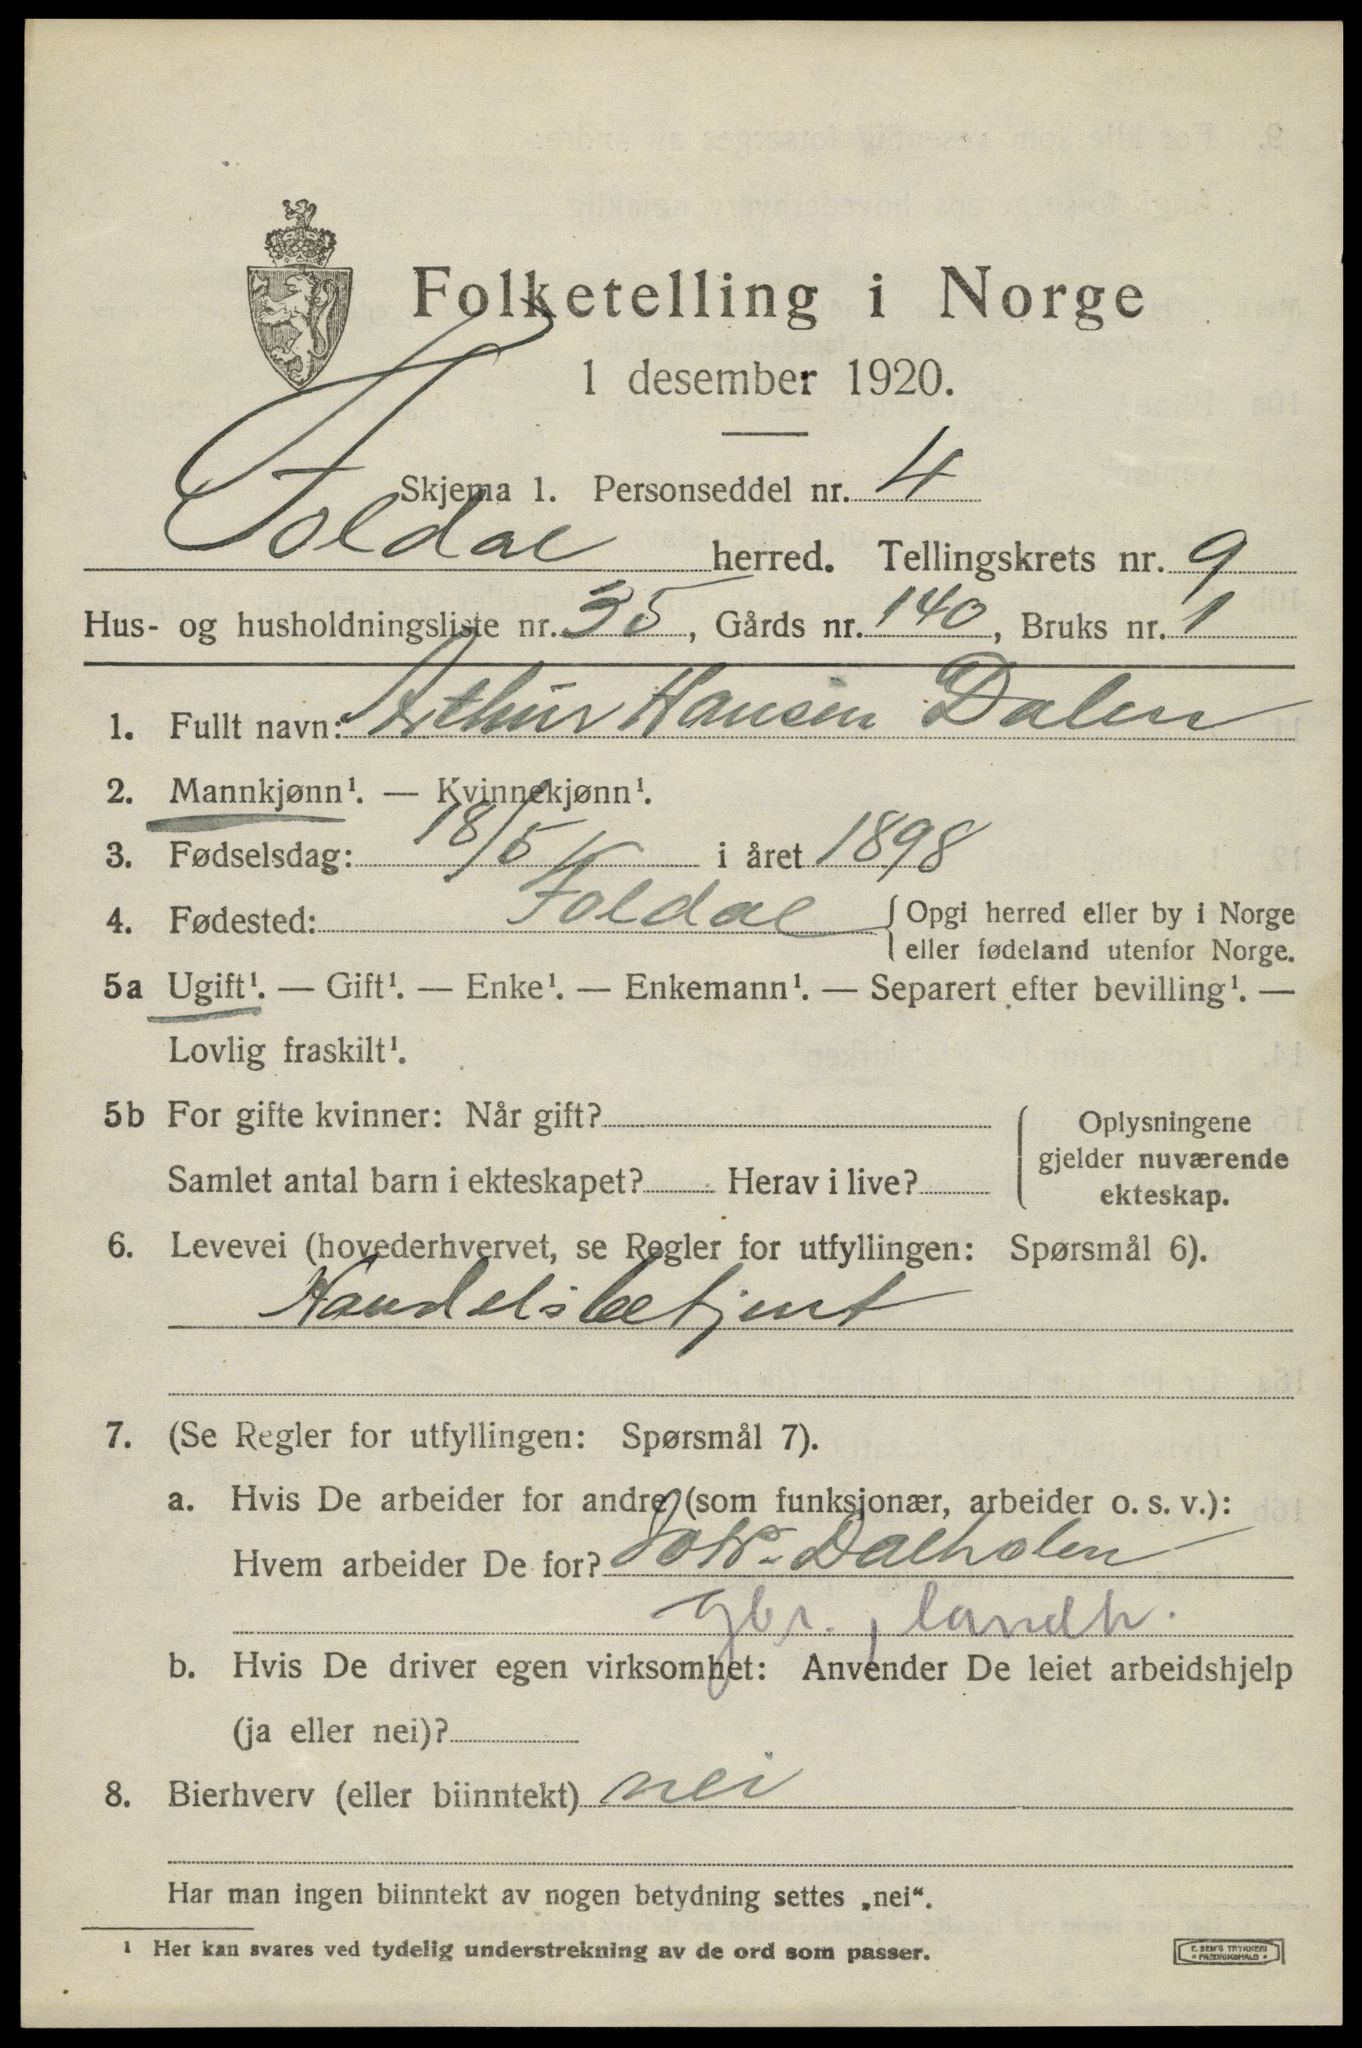 Folketelling i Norge
1 desember 1920.
Skjema 1. Personseddel nr. 4
Foldal herred. Tellingskrets nr. 9
Hus- og husholdningsliste nr. 35, Gårds nr. 140, Bruks nr. 1
1. Fullt navn: Arthur Hansen Dalen
2. Mannkjønn¹. — Kvinnekjønn¹.
3. Fødselsdag: 18/5 i året 1898
4. Fødested: Foldal { Opgi herred eller by i Norge
eller fødeland utenfor Norge.
5a Ugift¹. — Gift¹. — Enke¹. — Enkemann¹. — Separert efter bevilling¹. —
Lovlig fraskilt¹.
5b For gifte kvinner: Når gift?
Samlet antal barn i ekteskapet? Herav i live?
Oplysningene
gjelder nuværende
ekteskap.
6. Levevei (hovederhvervet, se Regler for utfyllingen: Spørsmål 6).
Handelsbetjent
7. (Se Regler for utfyllingen: Spørsmål 7).
a. Hvis De arbeider for andre (som funksjonær, arbeider o. s. v.):
Hvem arbeider De for? Dalholen
gbr., landh.
b. Hvis De driver egen virksomhet: Anvender De leiet arbeidshjelp
(ja eller nei)?
8. Bierhverv (eller biinntekt) nei
Har man ingen biinntekt av nogen betydning settes „nei“.
¹ Her kan svares ved tydelig understrekning av de ord som passer.
E. SEM'S TRYKKERI
FREDRIKSHALD